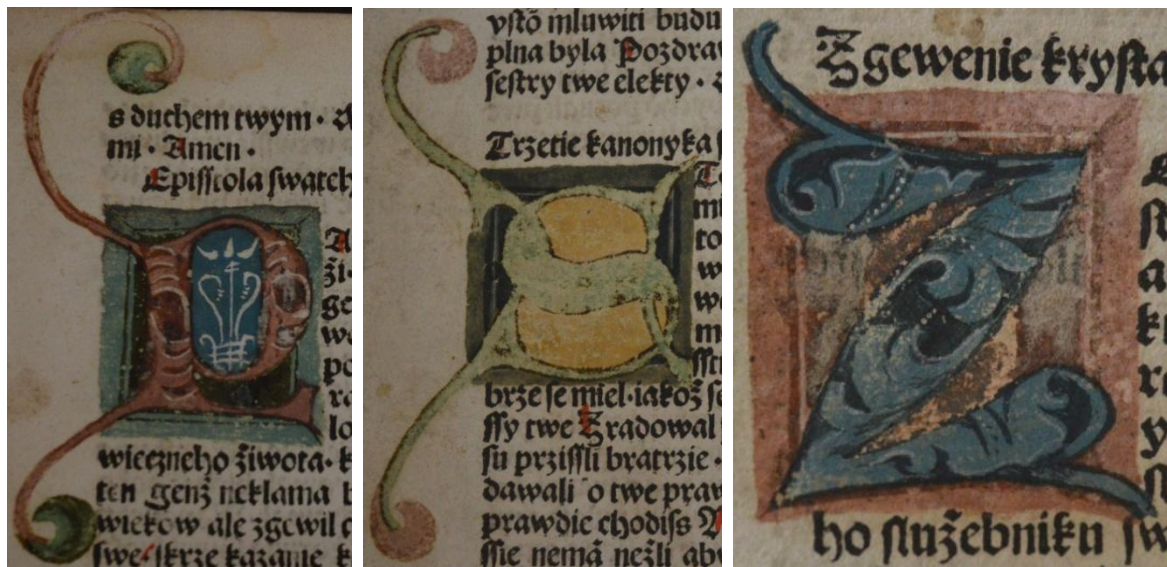 s duchem twym · A
mi · Amen ·
Episstola swateh
P
A
ži·
ge
we
po
ra
lo
wieczneho žiwota· k
ten genž neklama b
wiekow ale zgewil c
swe· skrze kazanie k
ystõ mluwiti budu
plna byla Pozdraw
sestry twe elekty · A
Trzetie kanonyka s
S
T
mi
to
w
we
m
sst
brze se miel·iakož se
ssy twe Zradowal
su przissli bratrzie ·
dawali o twe praw
prawdie chodiss A
ssie nemã nežli aby
Zgewenie krysta
Z
ho služebniku sw